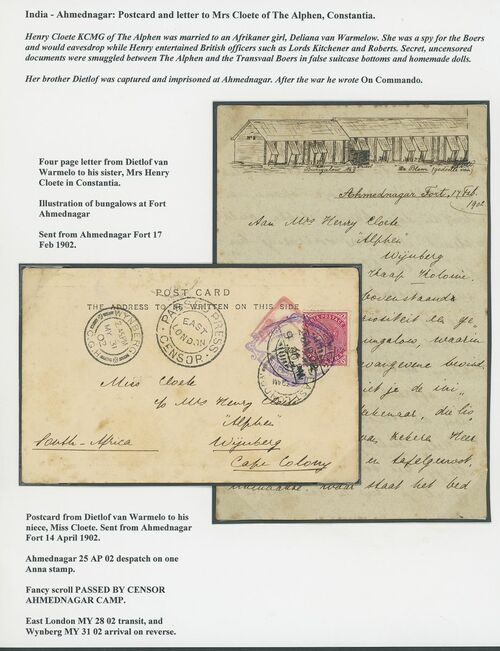 India - Ahmednagar: Postcard and letter to Mrs Cloete of The Alphen, Constantia.
Henry Cloete KCMG of The Alphen was married to an Afrikaner girl, Deliana van Warmelow. She was a spy for the Boers
and would eavesdrop while Henry entertained British officers such as Lords Kitchener and Roberts. Secret, uncensored
documents were smuggled between The Alphen and the Transvaal Boers in false suitcase bottoms and homemade dolls.
Her brother Dietlof was captured and imprisoned at Ahmednagar. After the war he wrote On Commando.
Four page letter from Dietlof van
Warmelo to his sister, Mrs Henry
Cloete in Constantia.
Illustration of bungalows at Fort
Ahmednagar
Sent from Ahmednagar Fort 17
Feb 1902.
Ahmednagar Fort, 17 Feb.
1902
Aan Mrs Henry Cloete
"Alphen"
Wijnberg
Kaap Kolonie.
POST CARD
THE ADDRESS TO BE WRITTEN ON THIS SIDE
WYNBERG
MY 31
02
C.G.H.
EAST
LONDON
CENSOR
Miss Cloete
c/o Mrs Henry Cloete
"Alphen"
South-Africa Wijnberg
Cape Colony
Postcard from Dietlof van Warmelo to his
niece, Miss Cloete. Sent from Ahmednagar
Fort 14 April 1902.
Ahmednagar 25 AP 02 despatch on one
Anna stamp.
Fancy scroll PASSED BY CENSOR
AHMEDNAGAR CAMP.
East London MY 28 02 transit, and
Wynberg MY 31 02 arrival on reverse.